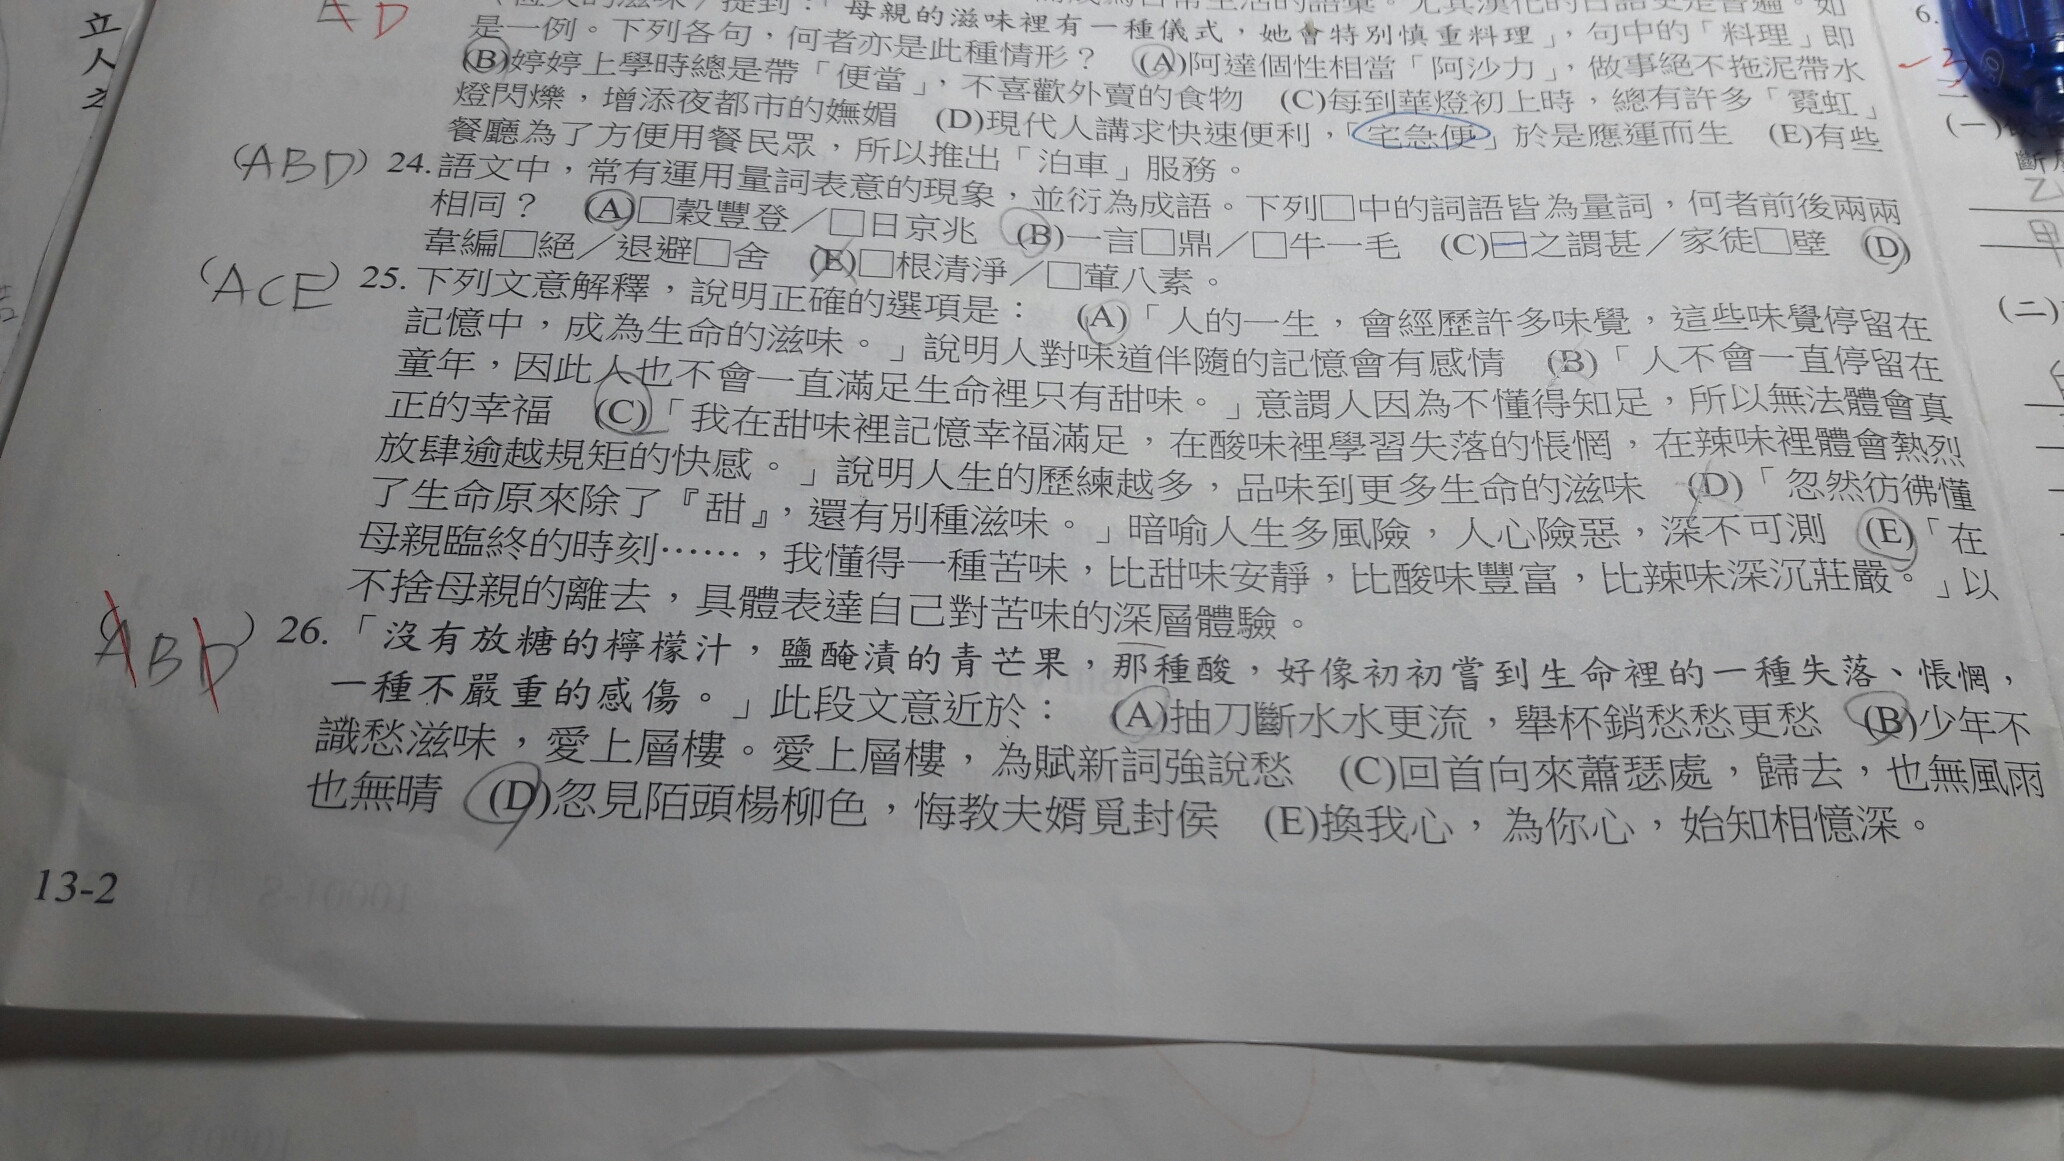 立人之
ED
是一例。下列各句，何者亦是此種情形？　(A)阿達個性相當「阿沙力」，做事絕不拖泥帶水
(B)婷婷上學時總是帶「便當」，不喜歡外賣的食物　(C)每到華燈初上時，總有許多「霓虹」
燈閃爍，增添夜都市的嫵媚　(D)現代人講求快速便利，「宅急便」於是應運而生　(E)有些
餐廳為了方便用餐民眾，所以推出「泊車」服務。
(ABD) 24.語文中，常有運用量詞表意的現象，並衍為成語。下列□中的詞語皆為量詞，何者前後兩兩
相同？　(A)□穀豐登／□日京兆　(B)一言□鼎／□牛一毛　(C)□之謂甚／家徒□壁　(D)
韋編□絕／退避□舍　(E)□根清淨／□葷八素。
(ACE) 25.下列文意解釋，說明正確的選項是：　(A)「人的一生，會經歷許多味覺，這些味覺停留在
記憶中，成為生命的滋味。」說明人對味道伴隨的記憶會有感情　(B)「人不會一直停留在
童年，因此人也不會一直滿足生命裡只有甜味。」意謂人因為不懂得知足，所以無法體會真
正的幸福　(C)「我在甜味裡記憶幸福滿足，在酸味裡學習失落的悵惘，在辣味裡體會熱烈
放肆逾越規矩的快感。」說明人生的歷練越多，品味到更多生命的滋味　(D)「忽然彷彿懂
了生命原來除了『甜』，還有別種滋味。」暗喻人生多風險，人心險惡，深不可測　(E)「在
母親臨終的時刻……，我懂得一種苦味，比甜味安靜，比酸味豐富，比辣味深沉莊嚴。」以
不捨母親的離去，具體表達自己對苦味的深層體驗。
(ABD) 26.「沒有放糖的檸檬汁，鹽醃漬的青芒果，那種酸，好像初初嘗到生命裡的一種失落、悵惘，
一種不嚴重的感傷。」此段文意近於：　(A)抽刀斷水水更流，舉杯銷愁愁更愁　(B)少年不
識愁滋味，愛上層樓。愛上層樓，為賦新詞強說愁　(C)回首向來蕭瑟處，歸去，也無風雨
也無晴　(D)忽見陌頭楊柳色，悔教夫婿覓封侯　(E)換我心，為你心，始知相憶深。
13-2
6.
(一)
斷
乙
甲
(二)